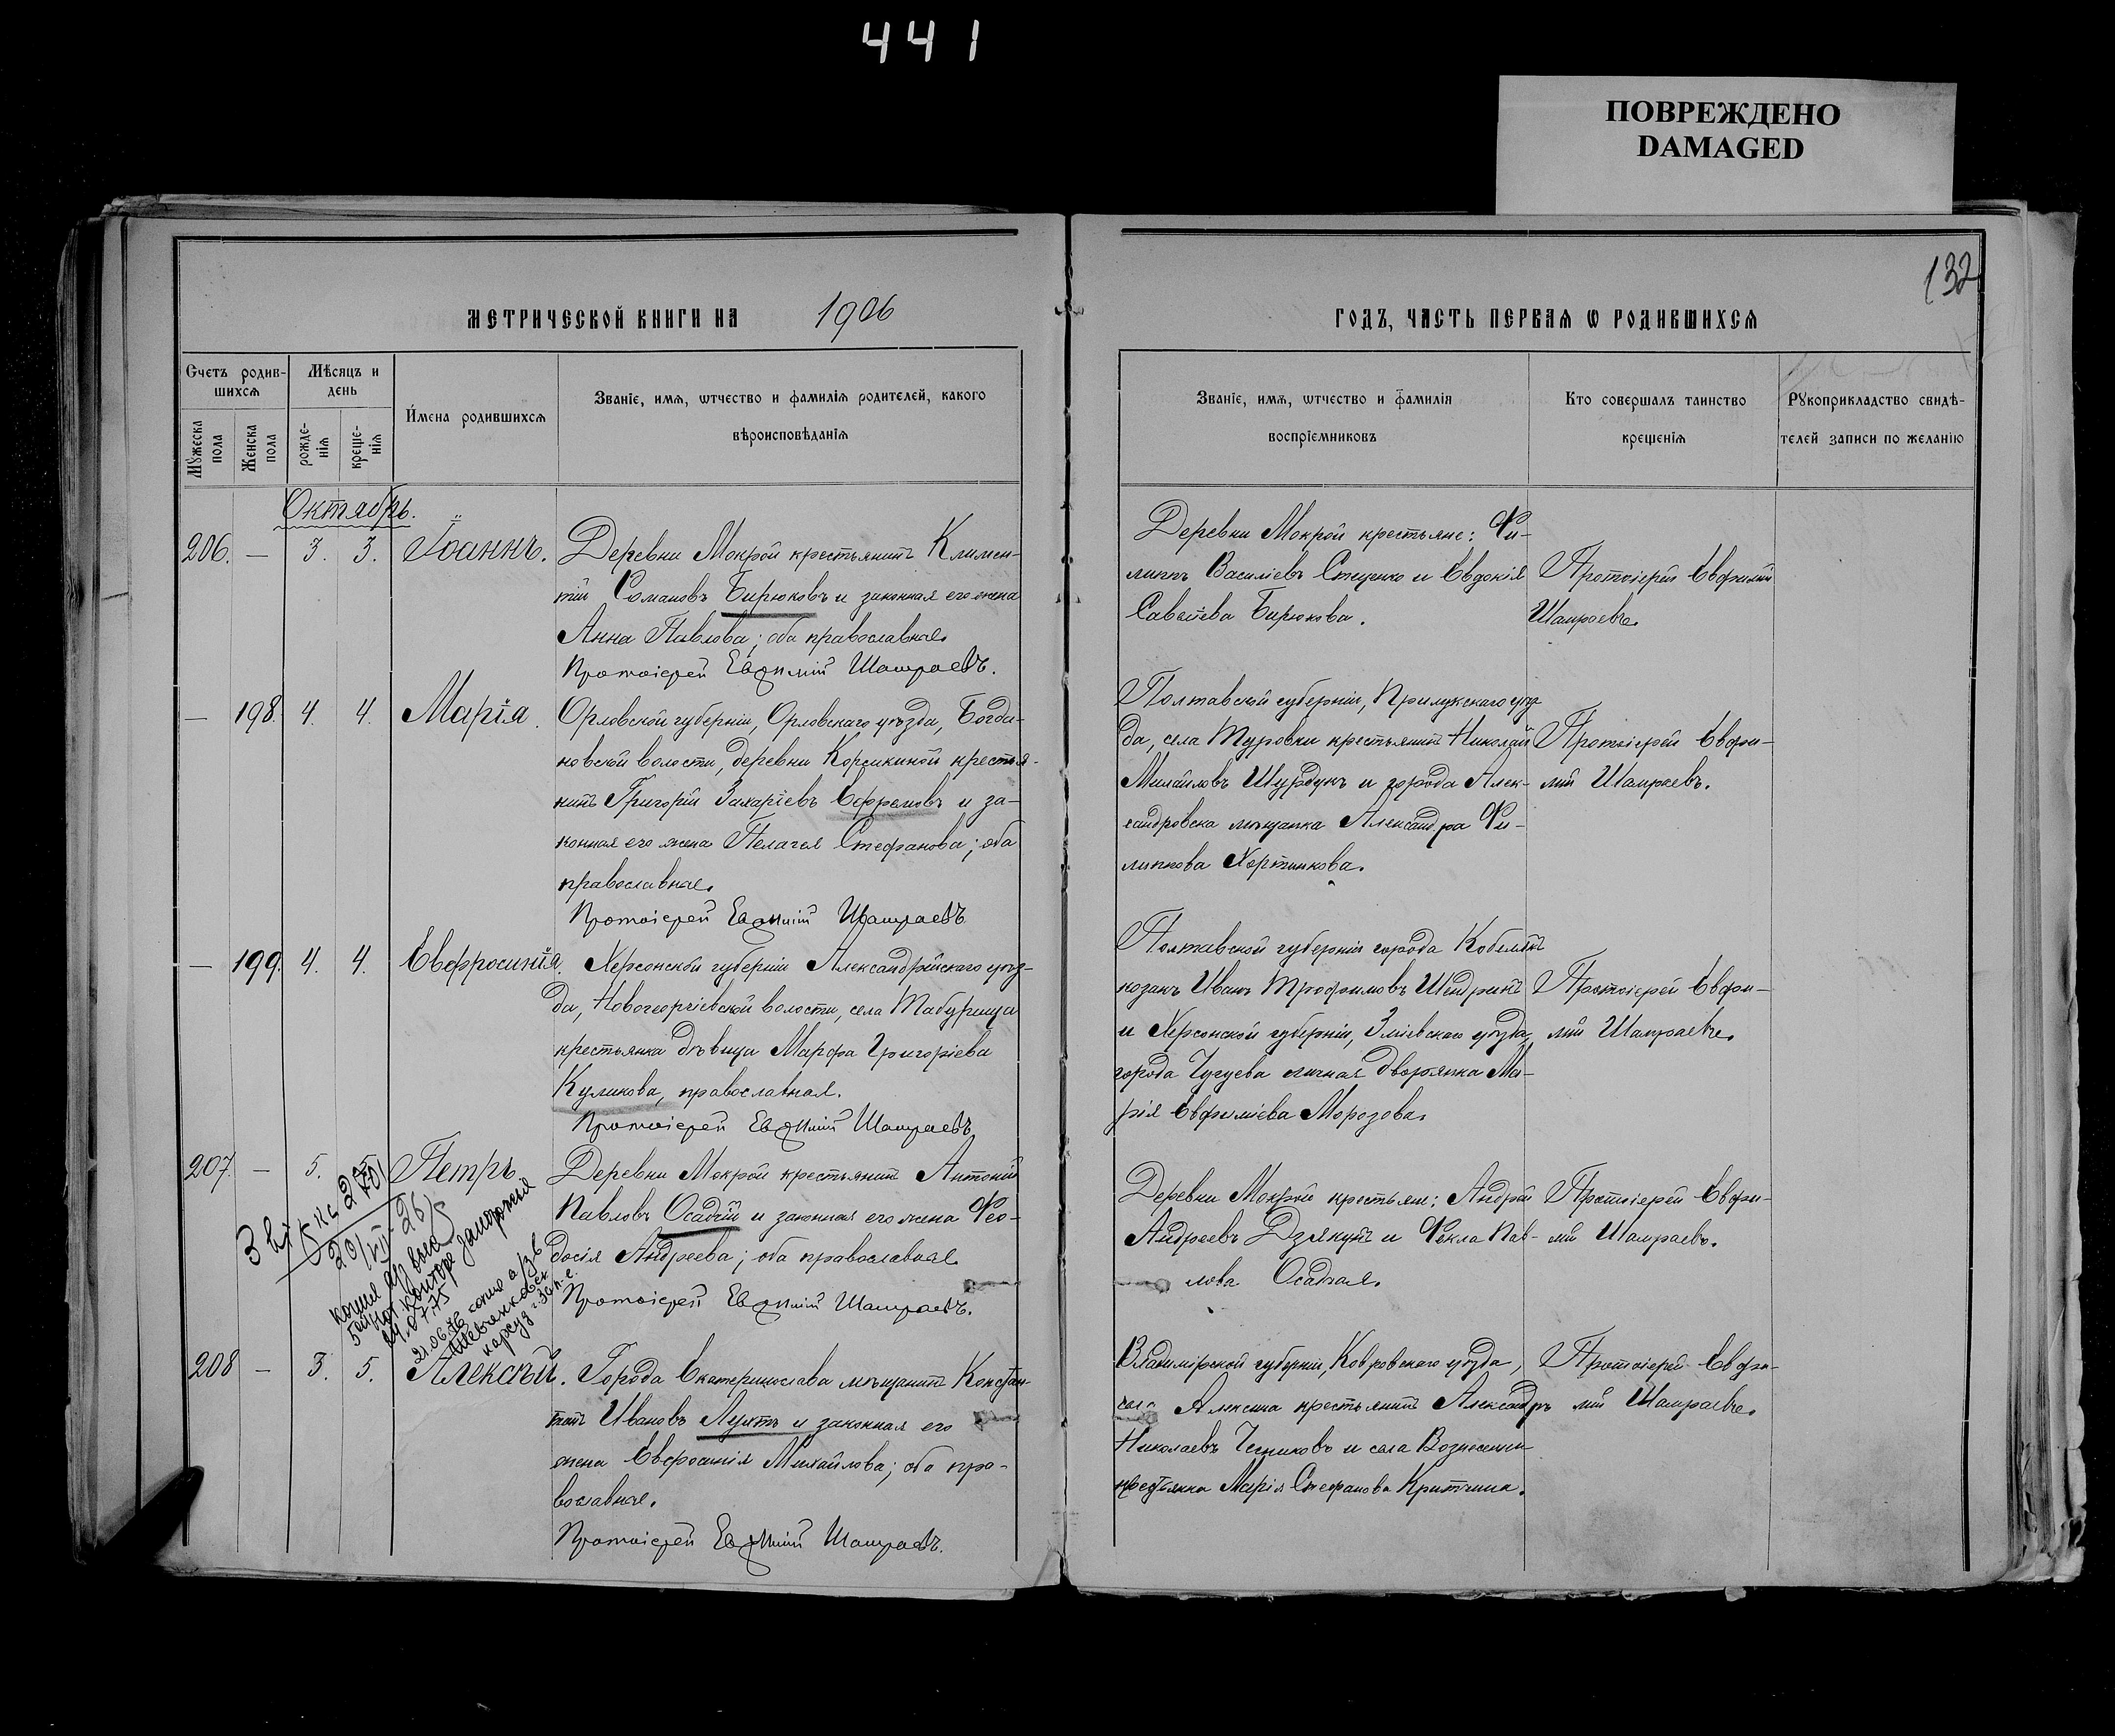 441
ПОВРЕЖДЕНО
DAMAGED
132
МЕТРИЧЕСКОЙ КНИГИ НА 1906
ГОДЪ, ЧАСТЬ ПЕРВАѦ Ѡ РОДИВШИХСѦ
Счетъ родив-
шихсѧ
Мѣсяцъ и
день
Имена родившихсѧ
Званіе, имѧ, ѡтчество и фамиліѧ родителей, какого
вѣроисповѣданіѧ
Мꙋжеска
пола
Женска
пола
рожде-
ніѧ
креще-
ніѧ
Званіе, имѧ, ѡтчество и фамиліѧ
воспріемниковъ
Кто совершалъ таинство
крещеніѧ
Рꙋкоприкладство свидѣ-
телей записи по желанію
Октябрь.
206. — 3. 3. Іоаннъ. Деревни Мокрой крестьянинъ Климен-
тій Романовъ Бирюковъ и законная его жена
Анна Павлова; оба православные.
Протоіерей Евѳимій Шамраевъ.
Деревни Мокрой крестьяне: Фи-
липпъ Василіевъ и Евдокія
Савеліева Бирюкова.
Протоіерей Евфимій
Шамраевъ.
— 198. 4. 4. Марія. Орловской губерніи, Орловскаго уѣзда, Богда-
новской волости, деревни крестья-
нинъ Григорій Захаріевъ Ефремовъ и за-
конная его жена Пелагея Стефанова; оба
православные.
Протоіерей Евѳимій Шамраевъ
Полтавской губерніи, Прилукскаго уѣз-
да, села Туровки крестьянинъ Николай
Михайловъ и города Алек-
сандровска мѣщанка Александра Фи-
липпова
Протоіерей Евфи-
мій Шамраевъ.
— 199. 4. 4. Евфросинія. Херсонской губерніи Александрійскаго уѣз-
да, Новогеоргіевской волости, села Табурища
крестьянка дѣвица Марфа Григоріева
Куликова, православная.
Протоіерей Евѳимій Шамраевъ
Полтавской губерніи города Кобелякъ
козакъ Иванъ Трофимовъ
и Херсонской губерніи, Зміевскаго уѣзда,
города Чугуева личная дворянка Ма-
рія Евфиміева Морозова.
Протоіерей Евфи-
мій Шамраевъ.
207 — 5. Петръ Деревни Мокрой крестьянинъ Антоній
Павловъ Осадчій и законная его жена Фео-
досія Андреева; оба православные
Протоіерей Евѳимій Шамраевъ.
Деревни Мокрой крестьяне: Андрей
Андреевъ Дзякунъ и Фекла Пав-
лова Осадчая.
Протоіерей Евфи-
мій Шамраевъ.
20/VII-26
копия
нот конторе запорожья
14.07.75
21.06.76 копия
208 — 3. 5. Алексѣй. Города Екатеринослава мѣщанинъ Констан-
тинъ Ивановъ и законная его
жена Евфросинія Михайлова; оба пра-
вославные.
Протоіерей Евѳимій Шамраевъ.
Владимірской губерніи, Ковровскаго уѣзда,
села Алексина крестьянинъ Александръ
Николаевъ и села Вознесенки
крестьянка Марія Стефанова
Протоіерей Евфи-
мій Шамраевъ.